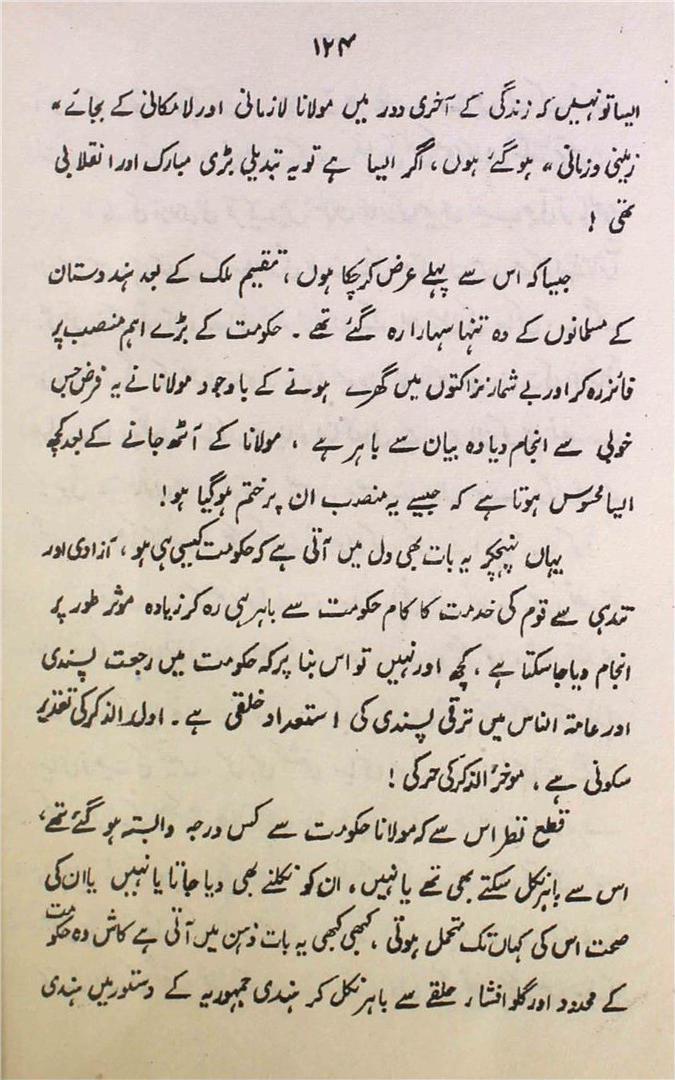 ۱۲۴
ایسا تو نہیں کہ زندگی کے آخری دور میں مولانا لازمانی اور لامکانی کے بجائے "
زمینی و زمانی " ہو گئے ہوں ، اگر ایسا ہے تو یہ تبدیلی بڑی مبارک اور انقلابی
تھی !
جیسا کہ اس سے پہلے عرض کر چکا ہوں ، تقسیم ملک کے بعد ہندوستان
کے مسلمانوں کے وہ تنہا سہارا رہ گئے تھے ۔ حکومت کے بڑے اہم منصب پر
فائز رہ کر اور بے شمار نزاکتوں میں گھرے ہونے کے باوجود مولانا نے یہ فرض جس
خوبی سے انجام دیا وہ بیان سے باہر ہے ، مولانا کے اٹھ جانے کے بعد کچھ
ایسا محسوس ہوتا ہے کہ جیسے یہ منصب ان پر ختم ہو گیا ہو !
یہاں پہنچکر یہ بات بھی دل میں آتی ہے کہ حکومت کیسی ہی ہو ، آزادی اور
تندہی سے قوم کی خدمت کا کام حکومت سے باہر ہی رہ کر زیادہ موثر طور پر
انجام دیا جا سکتا ہے ، کچھ اور نہیں تو اس بنا پر کہ حکومت میں رجعت پسندی
اور عامۃ الناس میں ترقی پسندی کی استعداد خلقی ہے ۔ اولد الذکر کی تقدیر
سکونی ہے ، موخر الذکر کی حرکی !
قطع نظر اس سے کہ مولانا حکومت سے کس درجہ وابستہ ہو گئے تھے ،
اس سے باہر نکل سکتے بھی تھے یا نہیں ، ان کو نکلنے بھی دیا جاتا یا نہیں یا ان کی
صحت اس کی کہاں تک متحمل ہوتی ، کبھی کبھی یہ بات ذہن میں آتی ہے کاش وہ حکومت
کے محدود اور گلو افشار حلقے سے باہر نکل کر ہندی جمہوریہ کے دستور میں ہندی